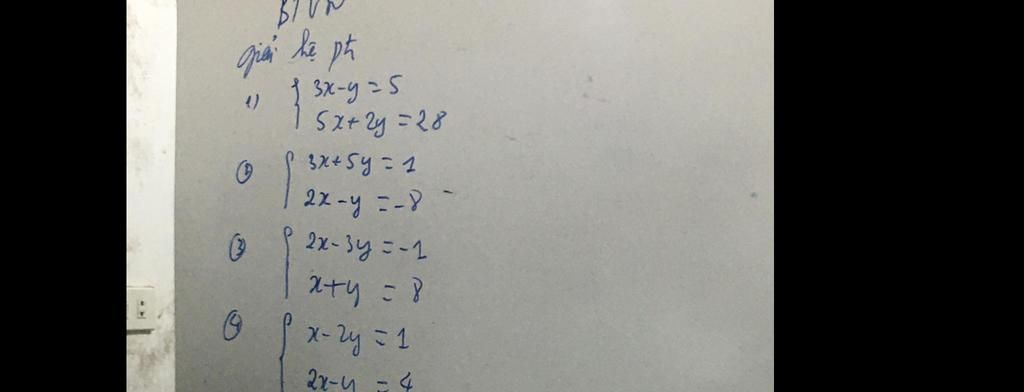 BTVN
giải hệ pt
1) 3x-y=5
5x+2y=28
② 3x+5y=1
2x-y=-8
③ 2x-3y=-1
x+y=8
④ x-2y=1
2x-y=4